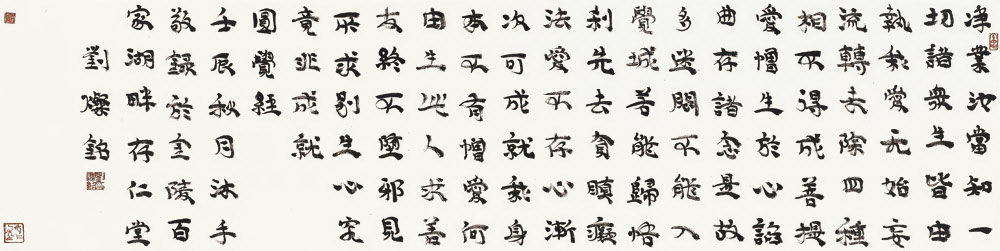 淨業汝當知一
切諸衆生皆由
執我愛无始妄
流轉未除四種
相不得成善提
愛憎生於心諂
曲存諸念是故
多迷悶不能入
覺城若能歸悟
刹先去貪瞋癡
法愛不存心漸
次可成就我身
本不有憎愛何
由生此人求善
友終不墮邪見
所求別生心究
竟非成就
圓覺經
壬辰秋月沐手
敬録於金陵百
家湖畔存仁堂
劉燦銘